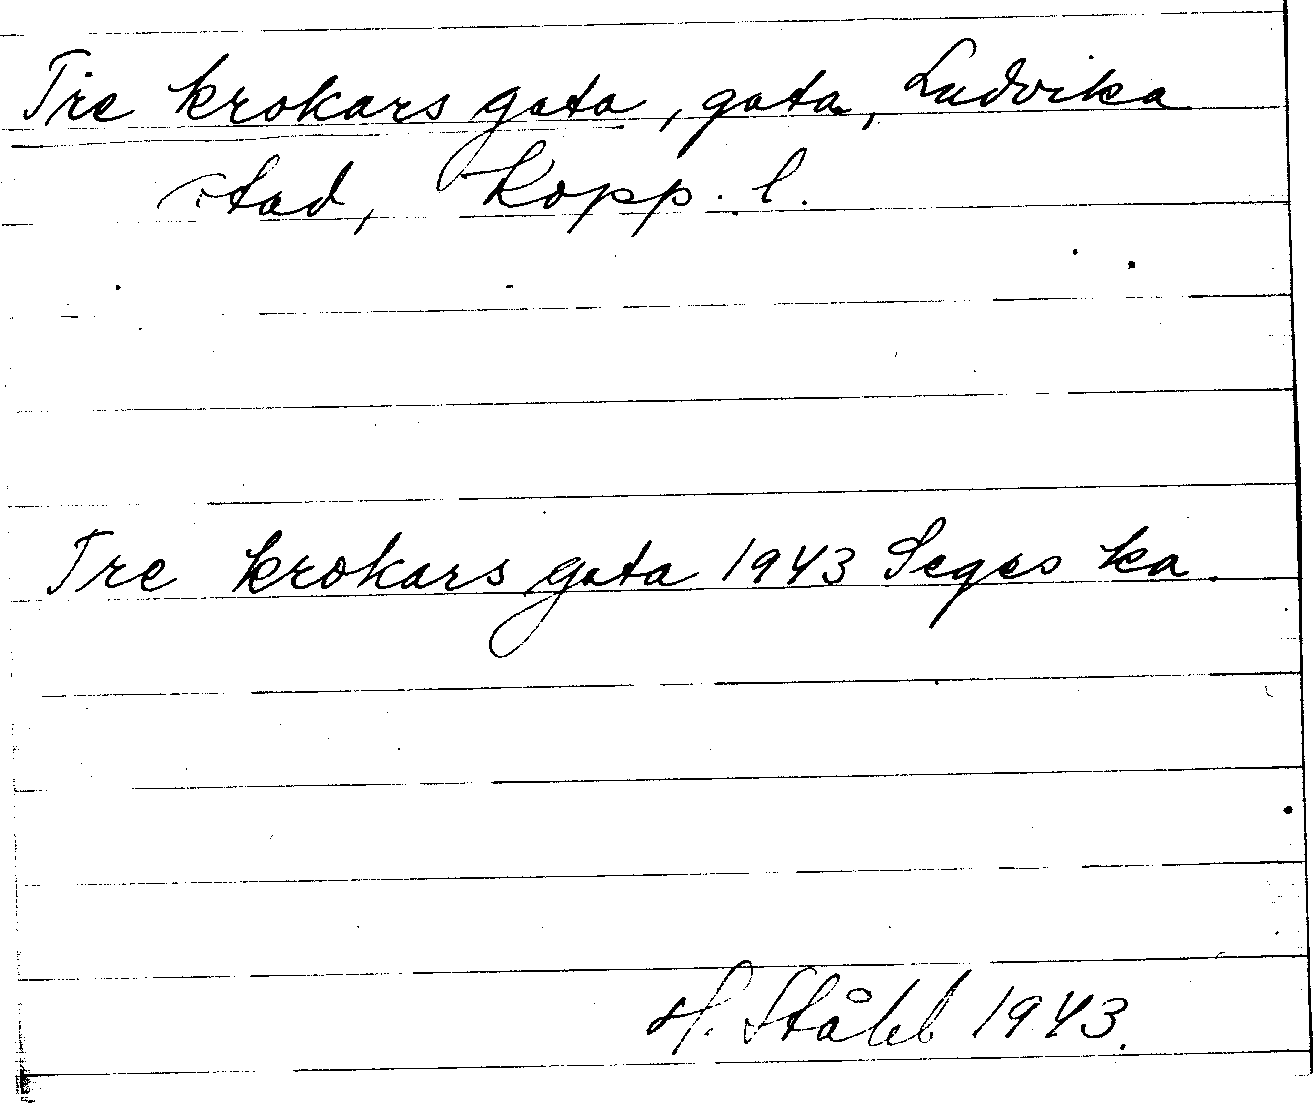 Tre krokars gata, gata, Ludvika
stad, Kopp. l.
Tre krokars gata 1943 Seges ka.
H. Ståhl 1943.